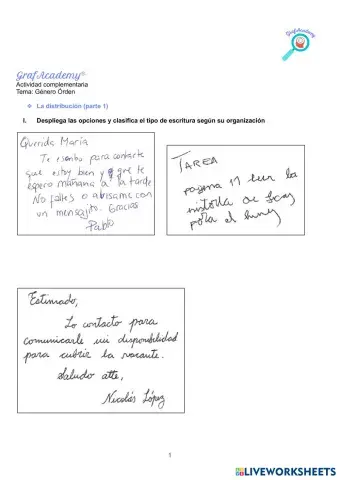 GrafAcademy
GrafAcademy®
Actividad complementaria
Tema: Género Orden
❖ La distribución (parte 1)
I. Despliega las opciones y clasifica el tipo de escritura según su organización
Querida María
Te escribo para contarte
que estoy bien y que te
espero mañana a la tarde
No faltes o avisame con
un mensajito. Gracias
Pablo
TAREA
pagina 11 leer la
el
Estimado,
Lo contacto para
comunicarle mi disponibilidad
para cubrir la vacante.
Saludo atte,
Nicolás López
1
LIVEWORKSHEETS